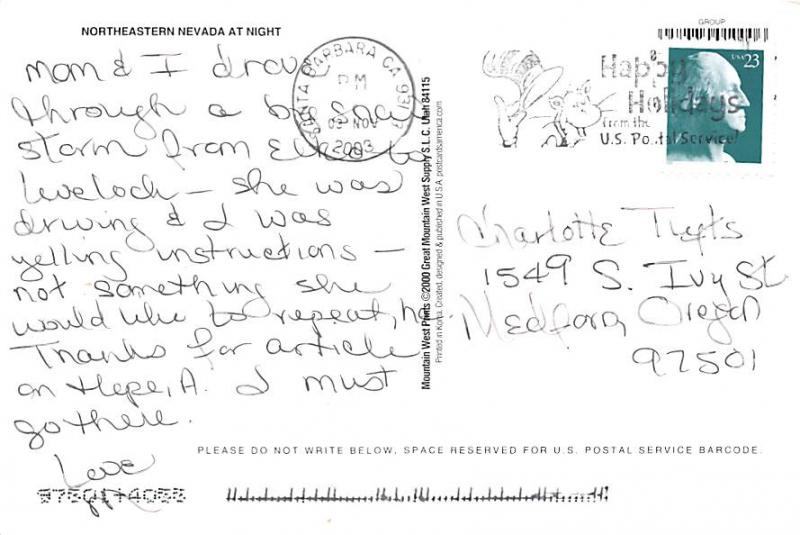 NORTHEASTERN NEVADA AT NIGHT
Mom & I drove
through a big
storm from Elko to
Loveloch - she was
driving & I was
yelling instructions -
not something she
would like to repeat, ha.
Thanks for article
on Hope, A. I must
go there.
Love
97501+4055
SANTA BARBARA CA 931
PM
03 NOV
2003
Mountain West Prints ©2000 Great Mountain West Supply S.L.C. Utah 84115
Printed in Korea. Created, designed & published in U.S.A. postcardsamerica.com
GROUP
USA 23
Happy
Holidays
from the
U.S. Postal Service!
Charlotte Tufts
1549 S. Ivy St
Medford, Oregon
97501
PLEASE DO NOT WRITE BELOW, SPACE RESERVED FOR U.S. POSTAL SERVICE BARCODE.